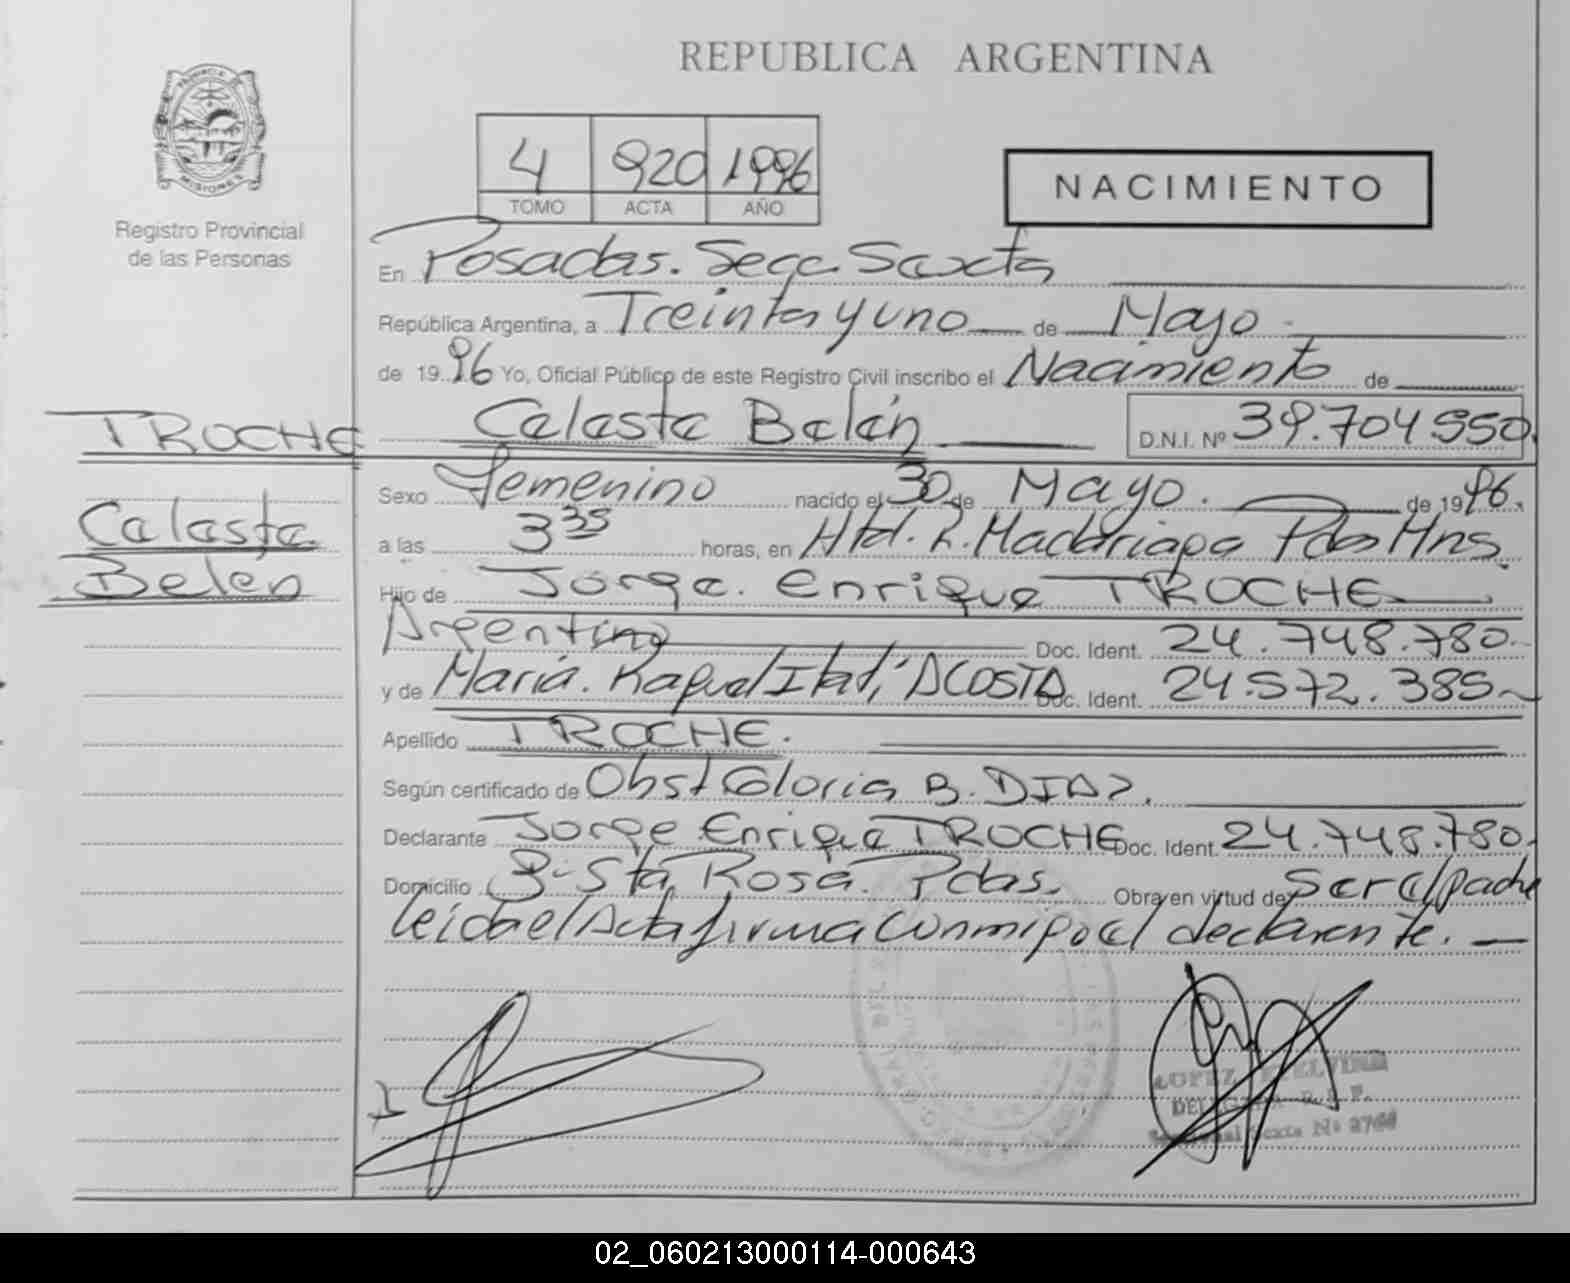 REPUBLICA ARGENTINA
MISIONES
Registro Provincial
de las Personas
4 920 1996
TOMO ACTA AÑO
NACIMIENTO
En Posadas. Secc. Sexta
República Argentina, a Treinta y uno de Mayo
de 1996 Yo, Oficial Público de este Registro Civil inscribo el Nacimiento de
TROCHE
Celeste
Belén
Celeste Belén D.N.I. Nº 39.704 550
Sexo femenino nacido el 30 de Mayo. de 1996.
a las 3 35 horas, en Htal. R. Madariaga Pdas Mns
Hijo de Jorge. Enrique TROCHE
Argentino Doc. Ident. 24.748.780.
y de María. Raquel Itatí, ACOSTA Doc. Ident. 24.572.385
Apellido TROCHE.
Según certificado de Obst Gloria B. DIAZ.
Declarante Jorge Enrique TROCHE Doc. Ident. 24.748.780.
Domicilio Bº Sta Rosa. Pdas. Obra en virtud de Ser el padre
leida el Acta firma conmigo el declarante.
LOPEZ ETELVINA
DELEGADA R. S. P.
Seccional Sexta Nº
02_060213000114-000643